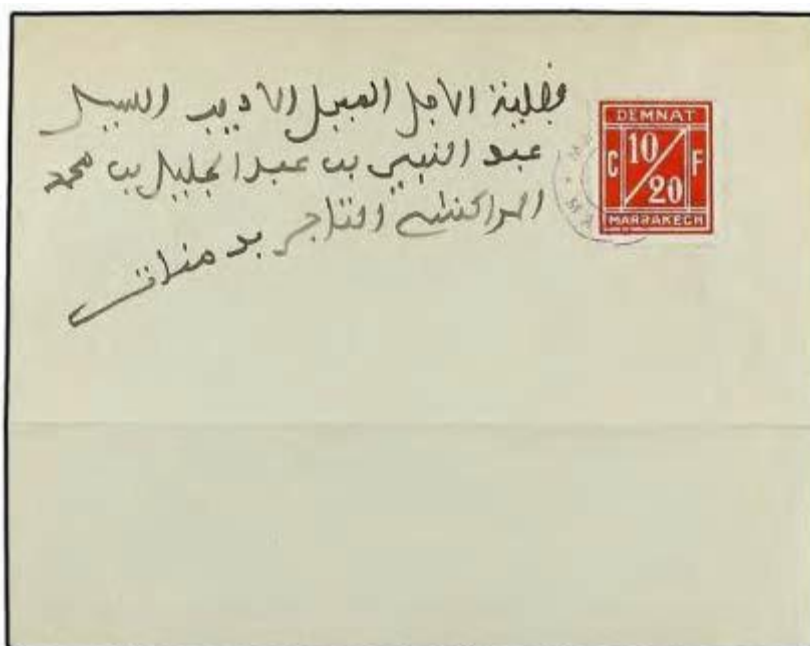 الاجل المبجل الاديب
عبد النبي بن عبد الجليل بن محمد
المراكشي التاجر بدمنات
DEMNAT
C 10/20 F
MARRAKECH